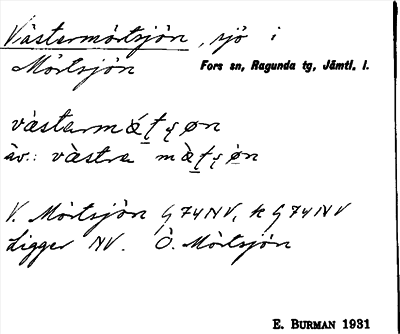 Västermörtsjön, sjö i
Mörtsjön Fors sn, Ragunda tg, Jämtl. l.
västarm
äv.: västra
V. Mörtsjön G 74 NV, k G 74 NV
Ligger NV. Ö. Mörtsjön
E. BURMAN 1931